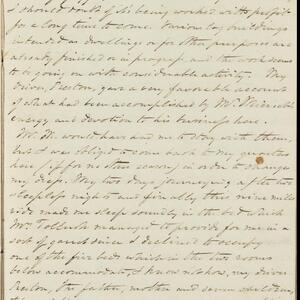 I should doubt of its being worked with profit
for a long time to come. Various log buildings
intended as dwellings or for other purposes are
already finished or in progress and the work seems
to be going on with considerable activity. My
driver, Preston, gave a very favorable account
of what had been accomplished by Mr.
energy and devotion to his business here.
Mr. W. would have had me to stay with them,
but I was obliged to come back to my quarters
here, if for no other reason, in order to change
my dress. My two days journeying after two
sleepless nights and finally this nine mile
ride made me sleep soundly in the bed which
Mrs. managed to provide for me in a
sort of garret since I declined to occupy
one of the five beds which in the two rooms
below accommodate, I know not how, my driver
Preston, the father, mother and seven children,